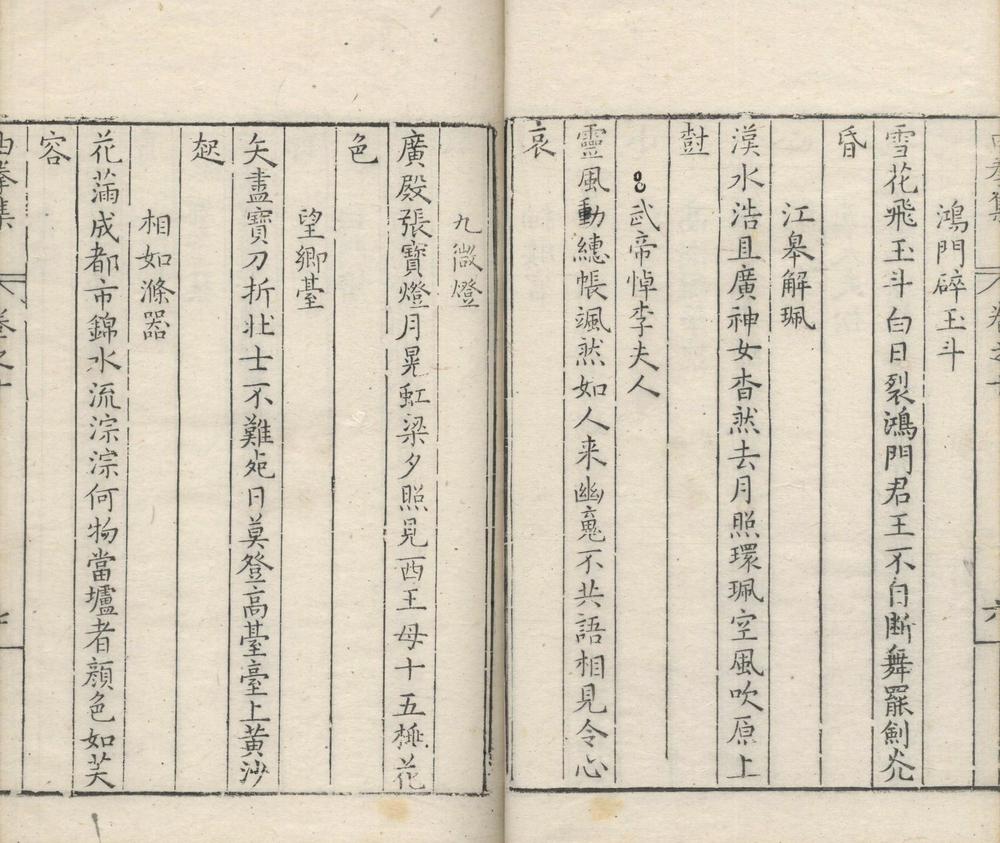 鴻門碎玉斗
雪花飛玉斗白日裂鴻門君王不自断舞罷劍光
昏
江皋解珮
漢水浩且廣神女杳然去月照環珮空風吹原上
尌
武帝悼李夫人
靈風動繐帳颯然如人来幽䰟不共語相見令心
哀
九微燈
廣殿張寶燈月晃虹梁夕照見西王母十五桃花
色
望鄉臺
矢盡寶刀折壮士不難死日莫登高臺臺上黄沙
起
相如滌器
花滿成都市錦水流淙淙何物當壚者顔色如芙
容